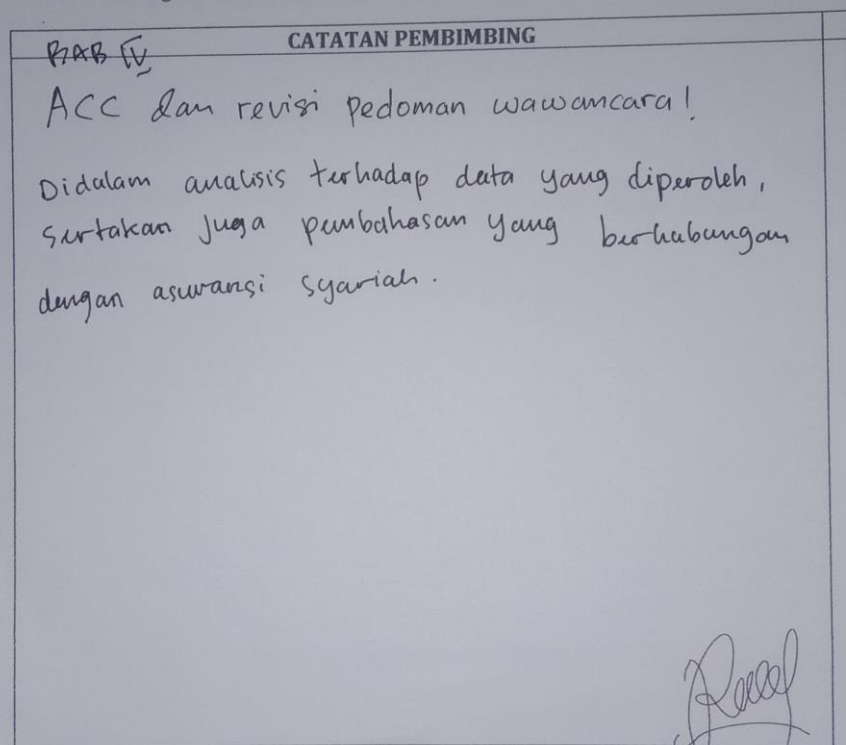 CATATAN PEMBIMBING
BAB IV
ACC dan revisi pedoman wawancara!
Didalam analisis terhadap data yang diperoleh,
sertakan juga pembahasan yang berhubungan
dengan asuransi syariah.